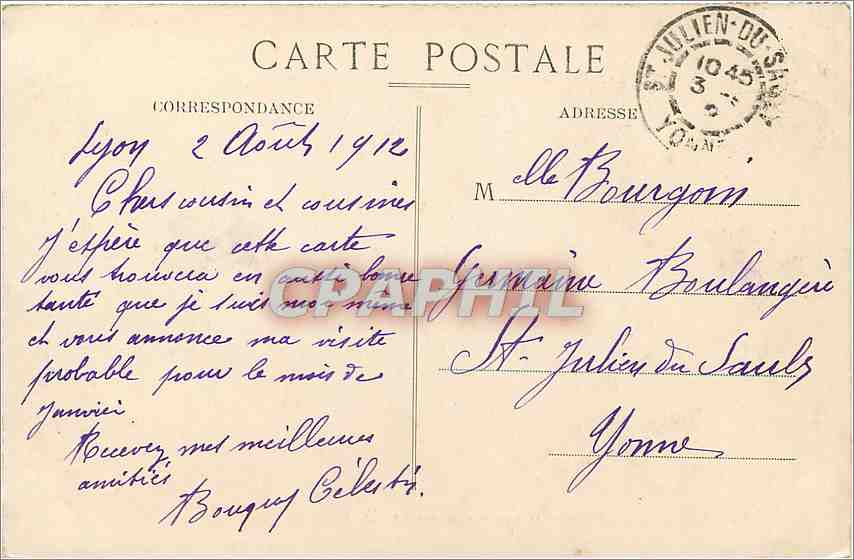 CARTE POSTALE
CORRESPONDANCE
Lyon 2 Août 1912
Chers cousin et cousines
J'espère que cette carte
vous trouvera en aussi bonne
santé que je suis moi même
et vous annonce ma visite
probable pour le mois de
Janvier
Recevez mes meilleures
amitiés
Célestin
ADRESSE
M elle Bourgoin
Germaine Boulangère
St Julien du Sault
Yonne
ST JULIEN-DU-SAULT
10 45
3
YONNE
CPAPHIL